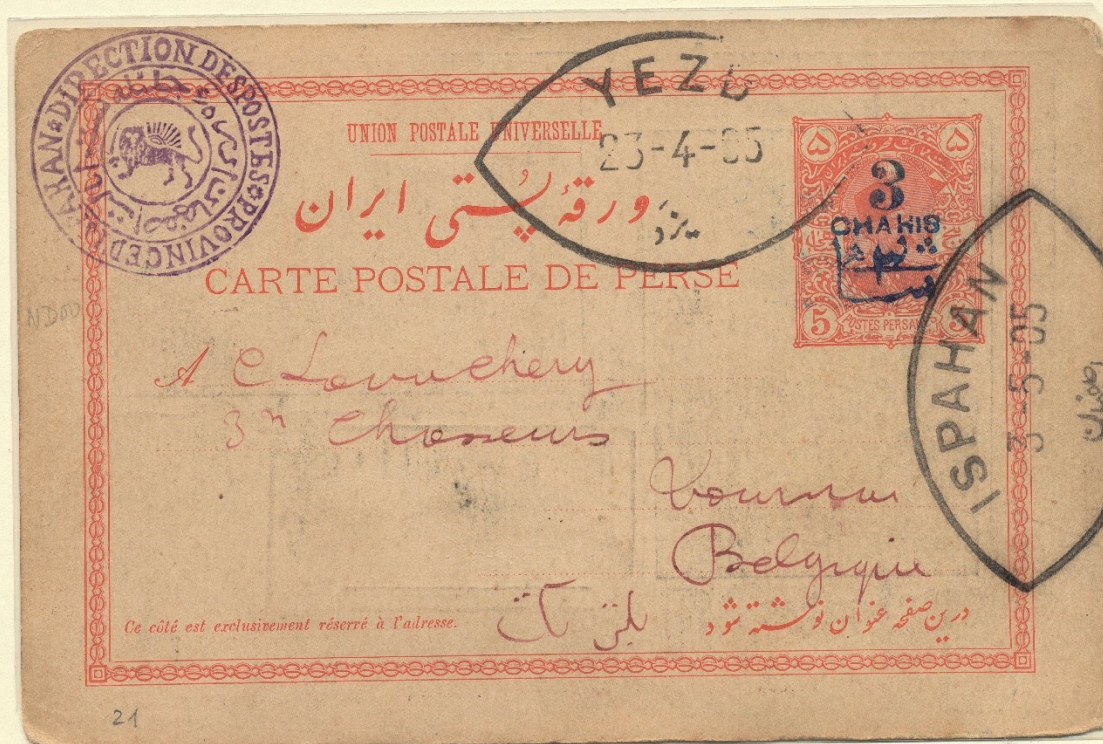 DIRECTION DES POSTES PROVINCE D'ISPAHAN
YEZD
23-4-05
یزد
UNION POSTALE UNIVERSELLE
ورقهٔ پستی ایران
CARTE POSTALE DE PERSE
۵ ۵
3
CHAHIS
۳
5 POSTES PERSANES 5
ISPAHAN
3-5-05
A C Lovuchery
3n Chasseurs
Tournai
Belgique
Ce côté est exclusivement réservé à l'adresse.
درین صفحه عنوان نوشته شود
21